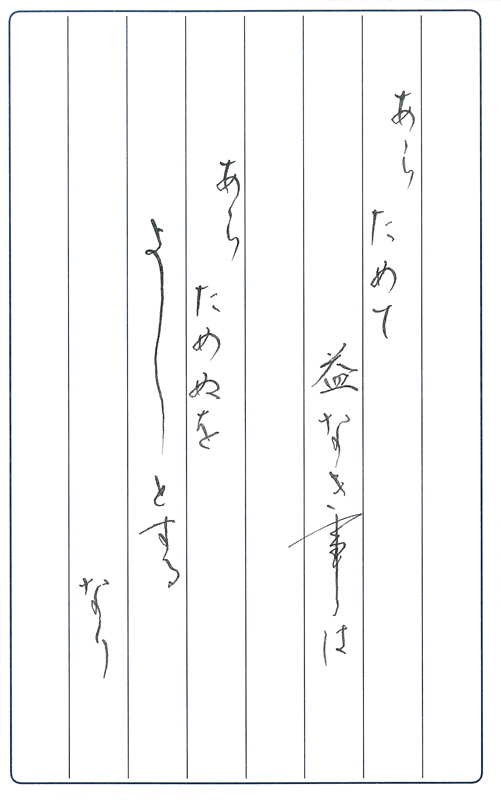 あら
ためて
益なき事は
あら
ためぬを
よしとする
なり